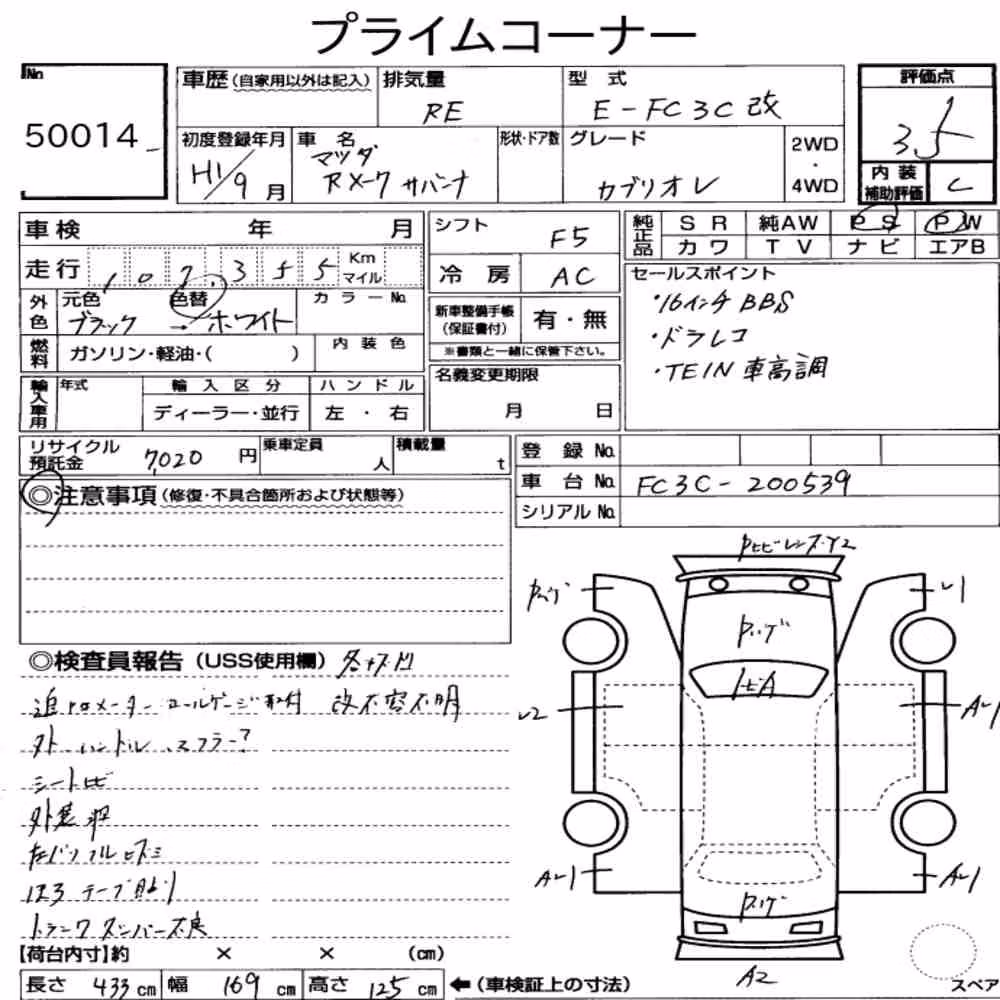 プライムコーナー
No.
50014
車歴(自家用以外は記入)
排気量
RE
型式
E-FC3C 改
評価点
3.5
初度登録年月
H1/9月
車名
マツダ
RX-7 サバンナ
形状・ドア数
グレード
カブリオレ
2WD
・
4WD
内装
補助評価
C
車検 年 月
走行 107,355 Km マイル
外色
元色
ブラック
色替
→ホワイト
カラーNo.
燃料
ガソリン・軽油・( )
内装色
輸入車用
年式
輸入区分
ディーラー・並行
ハンドル
左・右
シフト
F5
冷房
AC
新車整備手帳
(保証書付)
有・無
※書類と一緒に保管下さい。
名義変更期限
月 日
純正品
SR 純AW PS PW
カワ TV ナビ エアB
セールスポイント
・16インチBBS
・ドラレコ
・TEIN 車高調
リサイクル
預託金
7,020 円
乗車定員
人
積載量
t
登録No.
車台No. FC3C-200539
シリアルNo.
◎注意事項(修復・不具合箇所および状態等)
◎検査員報告(USS使用欄) 各キズ凹
追加メーター ロールゲージ取付 改不容不明
外-ハンドル、マフラー?
シートヒビ
外装
テープ貼り
トランクダンパー不良
【荷台内寸】約 × × (cm)
長さ 433 cm 幅 169 cm 高さ 125 cm
←(車検証上の寸法)
レンズ・Y2
レ1
ハゲ
1ヒA
レ2
Aレ1
Aレ1
Aレ1
ハゲ
A2
スペア